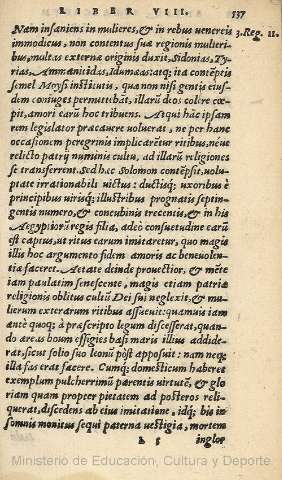 LIBER VIII. 137
Nam insaniens in mulieres, & in rebus venereis 3. Reg. 11.
immodicus, non contentus suæ regionis mulieri-
bus, multas externæ originis duxit, Sidonias, Ty-
rias, Ammanitidas, Idumæas: atq; ita contēpsit
semel Moysi instituti, quanon nisi gentis eius-
dem coniuges permittebāt, illarū deos colere cœ-
pit, amori earū hoc tribuens. Atqui hāc ipsam
rem legislator præcauere voluerat, ne per hanc
occasionem peregrinis implicarētur ritibus, neue
relicto patrų numinis cultu, ad illarū religiones
se transferrent. Sed hæc Solomon contēpsit, volu-
ptate irrationabili victus: ductisq; vxoribus è
principibus virisq; illustribus prognatis septin-
gentis numero, & concubinis trecentis, & in his
Aegyptiorū regis filia, adeò consuetudine earū
est captus, ut ritus earum imitaretur, quo magis
illis hoc argumento fidem amoris ac beneuolen-
tiæ faceret. Aetate deinde prouectior, & mēte
iam paulatim senescente, magis etiam patriæ
religionis oblitus cultū Dei sui neglexit, & mu-
lierum exterarum ritibus assueuit: quamuis iam
antè quoq; à præscripto legum discesserat, quan-
do æreas boum effigies basi maris illius addide-
rat, sicut solio suo leonū pòst apposuit: nam neq;
illa fas erat facere. Cumq; domesticum haberet
exemplum pulcherrimū parentis virtutē, & glo
riam quam propter pietatem ad posteros reli-
querat, discedens ab eius imitatione, idq́; bis in
somnis monitus sequi paterna vestigia, mortem
S 5 inglor
Ministerio de Educación, Cultura y Deporte